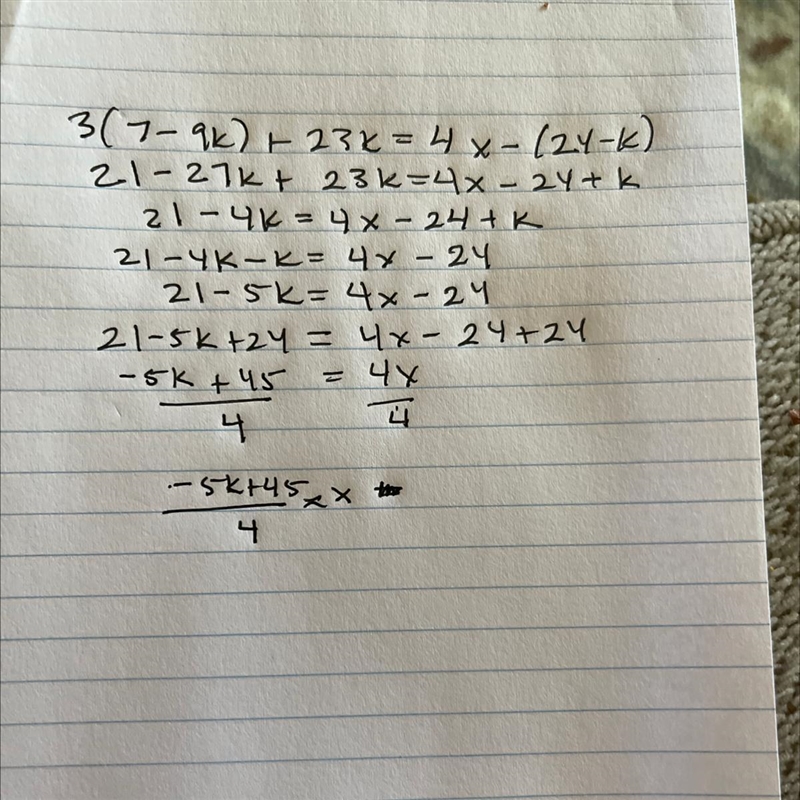 3(7-9k)+23k=4x-(24-k)
21-27k+ 23k=4x-24+k
21-4k=4x-24+k
21-4k-k=4x-24
21-5k=4x-24
21-5k+24=4x-24+24
-5k+45 = 4x
4 4
-5k+45 = x
4